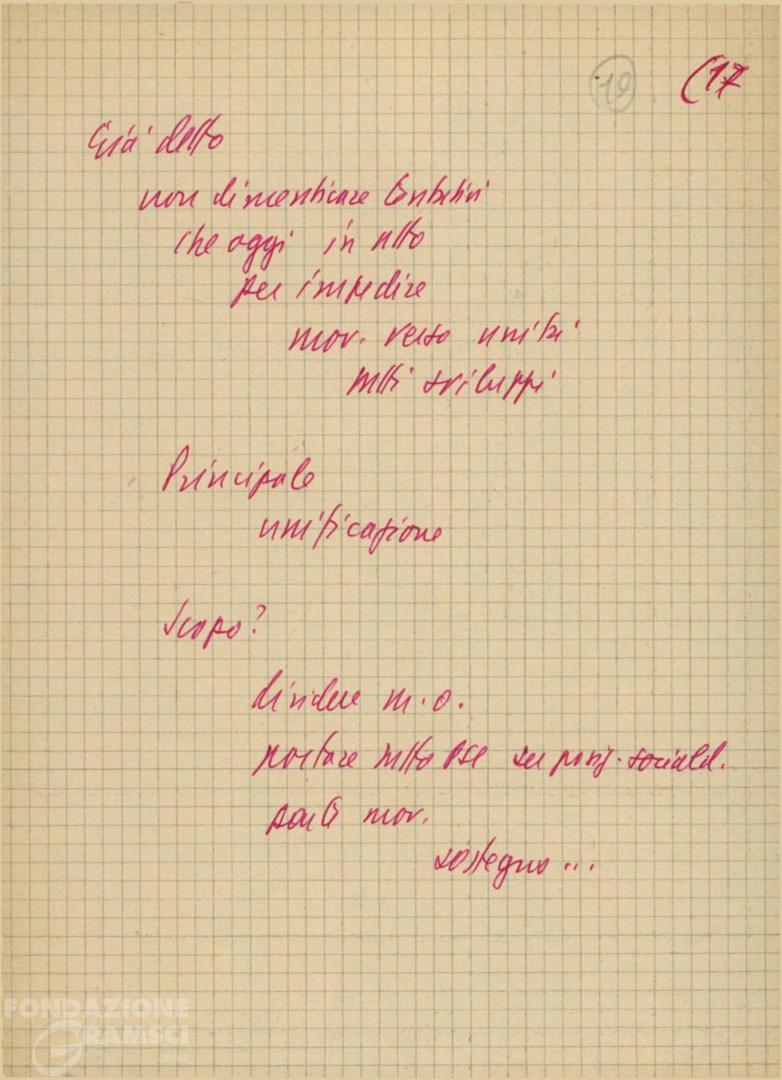 19 (17
Già detto
non dimenticare tentativi
che oggi in atto
per impedire
mov. verso unità
sviluppi
Principale
unificazione
Scopo?
dividere m.o.
portare tutto PSI su posiz. sociald.
mov.
sostegno...
FONDAZIONE
GRAMSCI